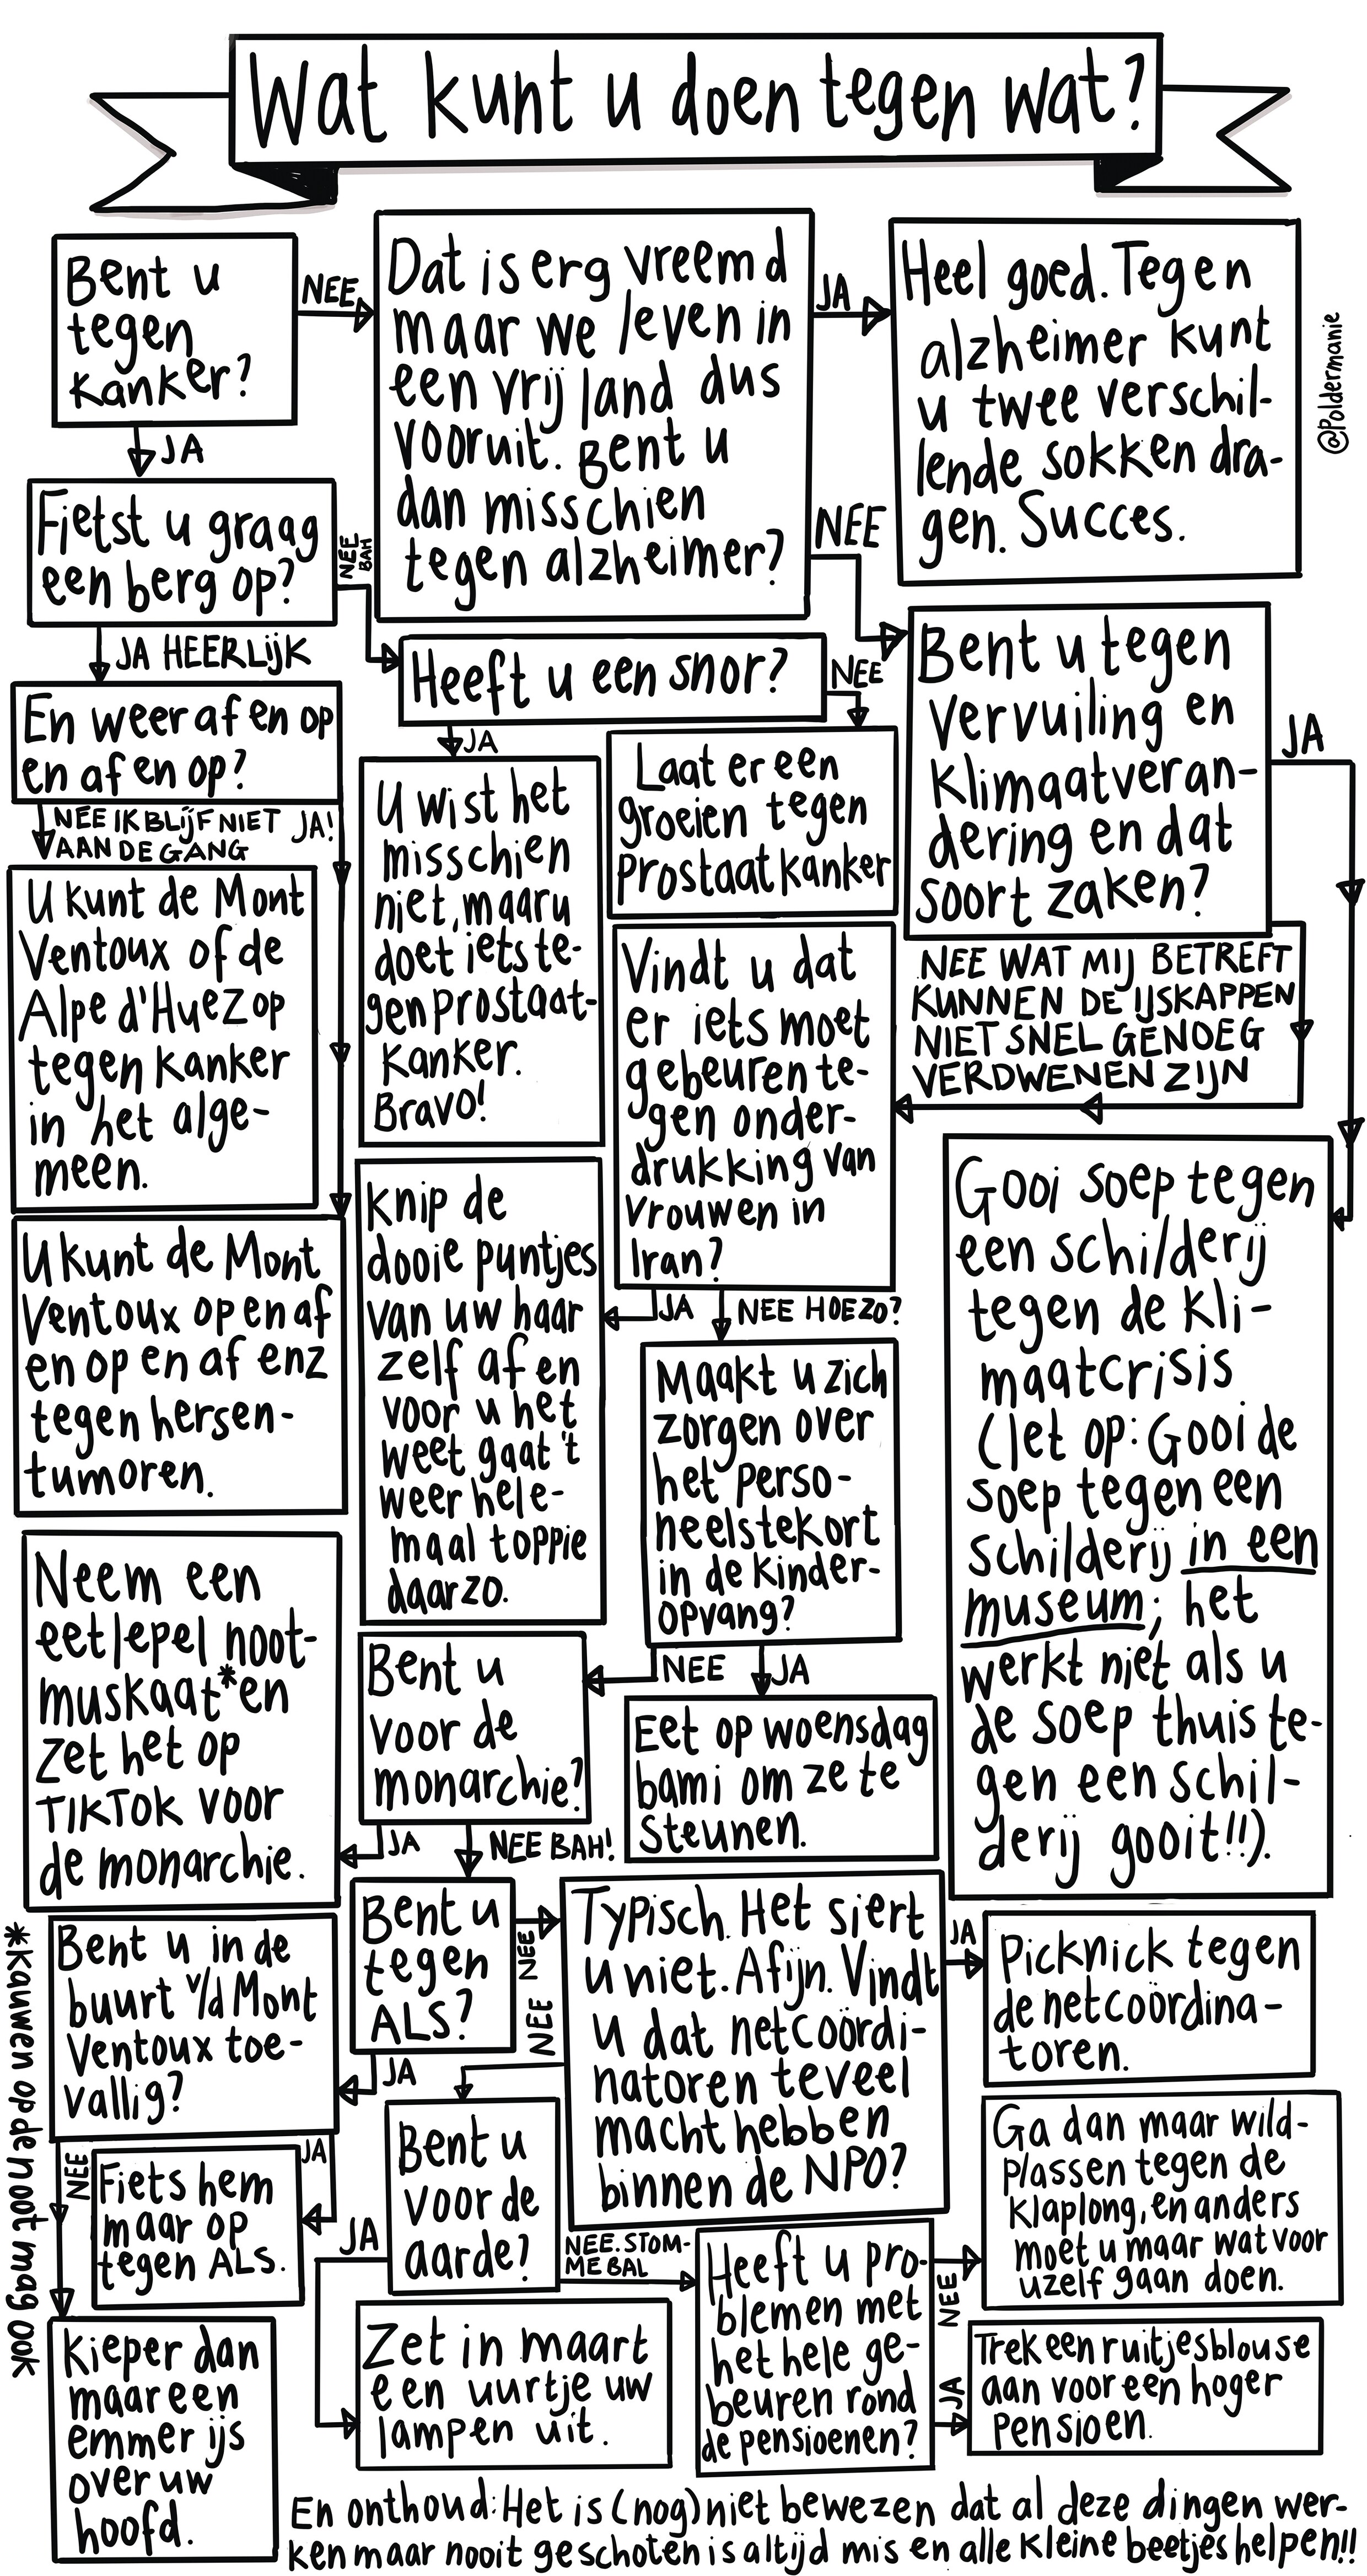 Wat kunt u doen tegen wat?
Bent u
tegen
kanker?
NEE
JA
Dat is erg vreemd
maar we leven in
een vrij land dus
vooruit. Bent u
dan misschien
tegen alzheimer?
JA
NEE
Heel goed. Tegen
alzheimer kunt
u twee verschil-
lende sokken dra-
gen. Succes.
@Poldermanie
Fietst u graag
een berg op?
NEE
BAH
JA HEERLIJK
En weer af en op
en af en op?
NEE IK BLIJF NIET
AAN DE GANG
JA!
Heeft u een snor?
NEE
JA
Laat er een
groeien tegen
prostaatkanker
U wist het
misschien
niet, maar u
doet iets te-
gen prostaat-
kanker.
Bravo!
Bent u tegen
vervuiling en
klimaatveran-
dering en dat
soort zaken?
JA
NEE WAT MIJ BETREFT
KUNNEN DE IJSKAPPEN
NIET SNEL GENOEG
VERDWENEN ZIJN
U kunt de Mont
Ventoux of de
Alpe d'Huez op
tegen kanker
in het alge-
meen.
U kunt de Mont
Ventoux op en af
en op en af enz
tegen hersen-
tumoren.
Vindt u dat
er iets moet
gebeuren te-
gen onder-
drukking van
vrouwen in
Iran?
JA
NEE HOEZO?
Knip de
dooie puntjes
van uw haar
zelf af en
voor u het
weet gaat 't
weer hele-
maal toppie
daarzo.
Gooi soep tegen
een schilderij
tegen de kli-
maatcrisis
(let op: Gooi de
soep tegen een
schilderij in een
museum; het
werkt niet als u
de soep thuis te-
gen een schil-
derij gooit!!).
Maakt u zich
zorgen over
het perso-
neelstekort
in de kinder-
opvang?
NEE
JA
Eet op woensdag
bami om ze te
steunen.
Bent u
voor de
monarchie?
JA
NEE BAH!
Neem een
eetlepel noot-
muskaat* en
zet het op
TIKTOK voor
de monarchie.
*Kauwen op de noot mag ook
Bent u
tegen
ALS?
NEE
JA
Typisch. Het siert
u niet. Afijn. Vindt
u dat netcoördi-
natoren teveel
macht hebben
binnen de NPO?
JA
NEE
Picknick tegen
de netcoördina-
toren.
Bent u in de
buurt v/d Mont
Ventoux toe-
vallig?
NEE
JA
Fiets hem
maar op
tegen ALS.
Kieper dan
maar een
emmer ijs
over uw
hoofd.
Bent u
voor de
aarde?
JA
NEE. STOM-
ME BAL
Zet in maart
een uurtje uw
lampen uit.
Heeft u pro-
blemen met
het hele ge-
beuren rond
de pensioenen?
NEE
JA
Ga dan maar wild-
plassen tegen de
klaplong, en anders
moet u maar wat voor
uzelf gaan doen.
Trek een ruitjesblouse
aan voor een hoger
pensioen.
En onthoud: Het is (nog) niet bewezen dat al deze dingen wer-
ken maar nooit geschoten is altijd mis en alle kleine beetjes helpen!!